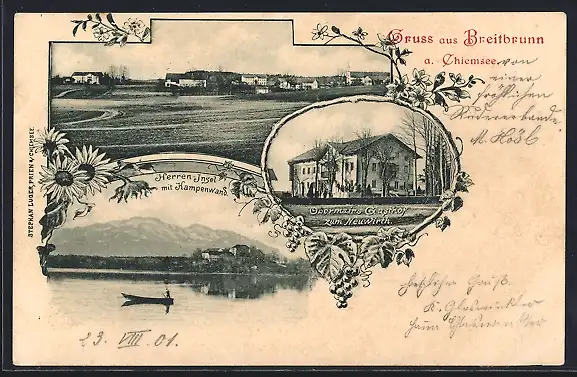 Gruss aus Breitbrunn
a. Chiemsee.
von
einer
fröhlichen
M. Hösl
STEPHAN LUGER, PRIEN A/CHIEMSEE.
Herren-Insel
mit Kampenwand
Obermairs Gasthof
zum Neuwirth.
herzlichen Gruß.
K.
23. VIII. 01.